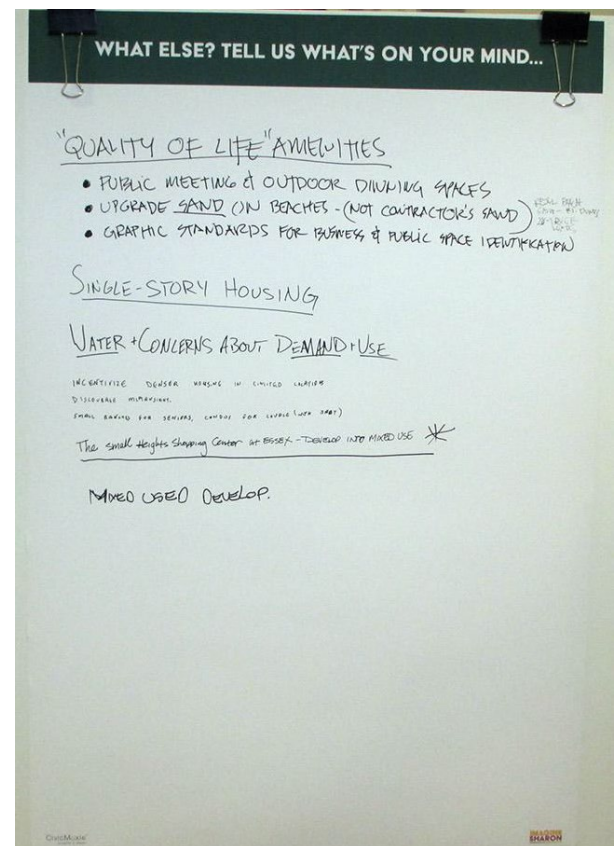 WHAT ELSE? TELL US WHAT'S ON YOUR MIND...
"QUALITY OF LIFE" AMENITIES
• PUBLIC MEETING & OUTDOOR DINNING SPACES
• UPGRADE SAND ON BEACHES - (NOT CONTRACTOR'S SAND)
• GRAPHIC STANDARDS FOR BUSINESS & PUBLIC SPACE IDENTIFICATION
SINGLE-STORY HOUSING
WATER + CONCERNS ABOUT DEMAND + USE
INCENTIVIZE DENSER HOUSING IN LIMITED LOCATION
DISCOURAGE MCMANSIONS.
SMALL RANCHES FOR SENIORS, CONDOS FOR
The small Heights Shopping Center at ESSEX - DEVELOP INTO MIXED USE *
MIXED USED DEVELOP.
CivicMoxie
IMAGINE
SHARON